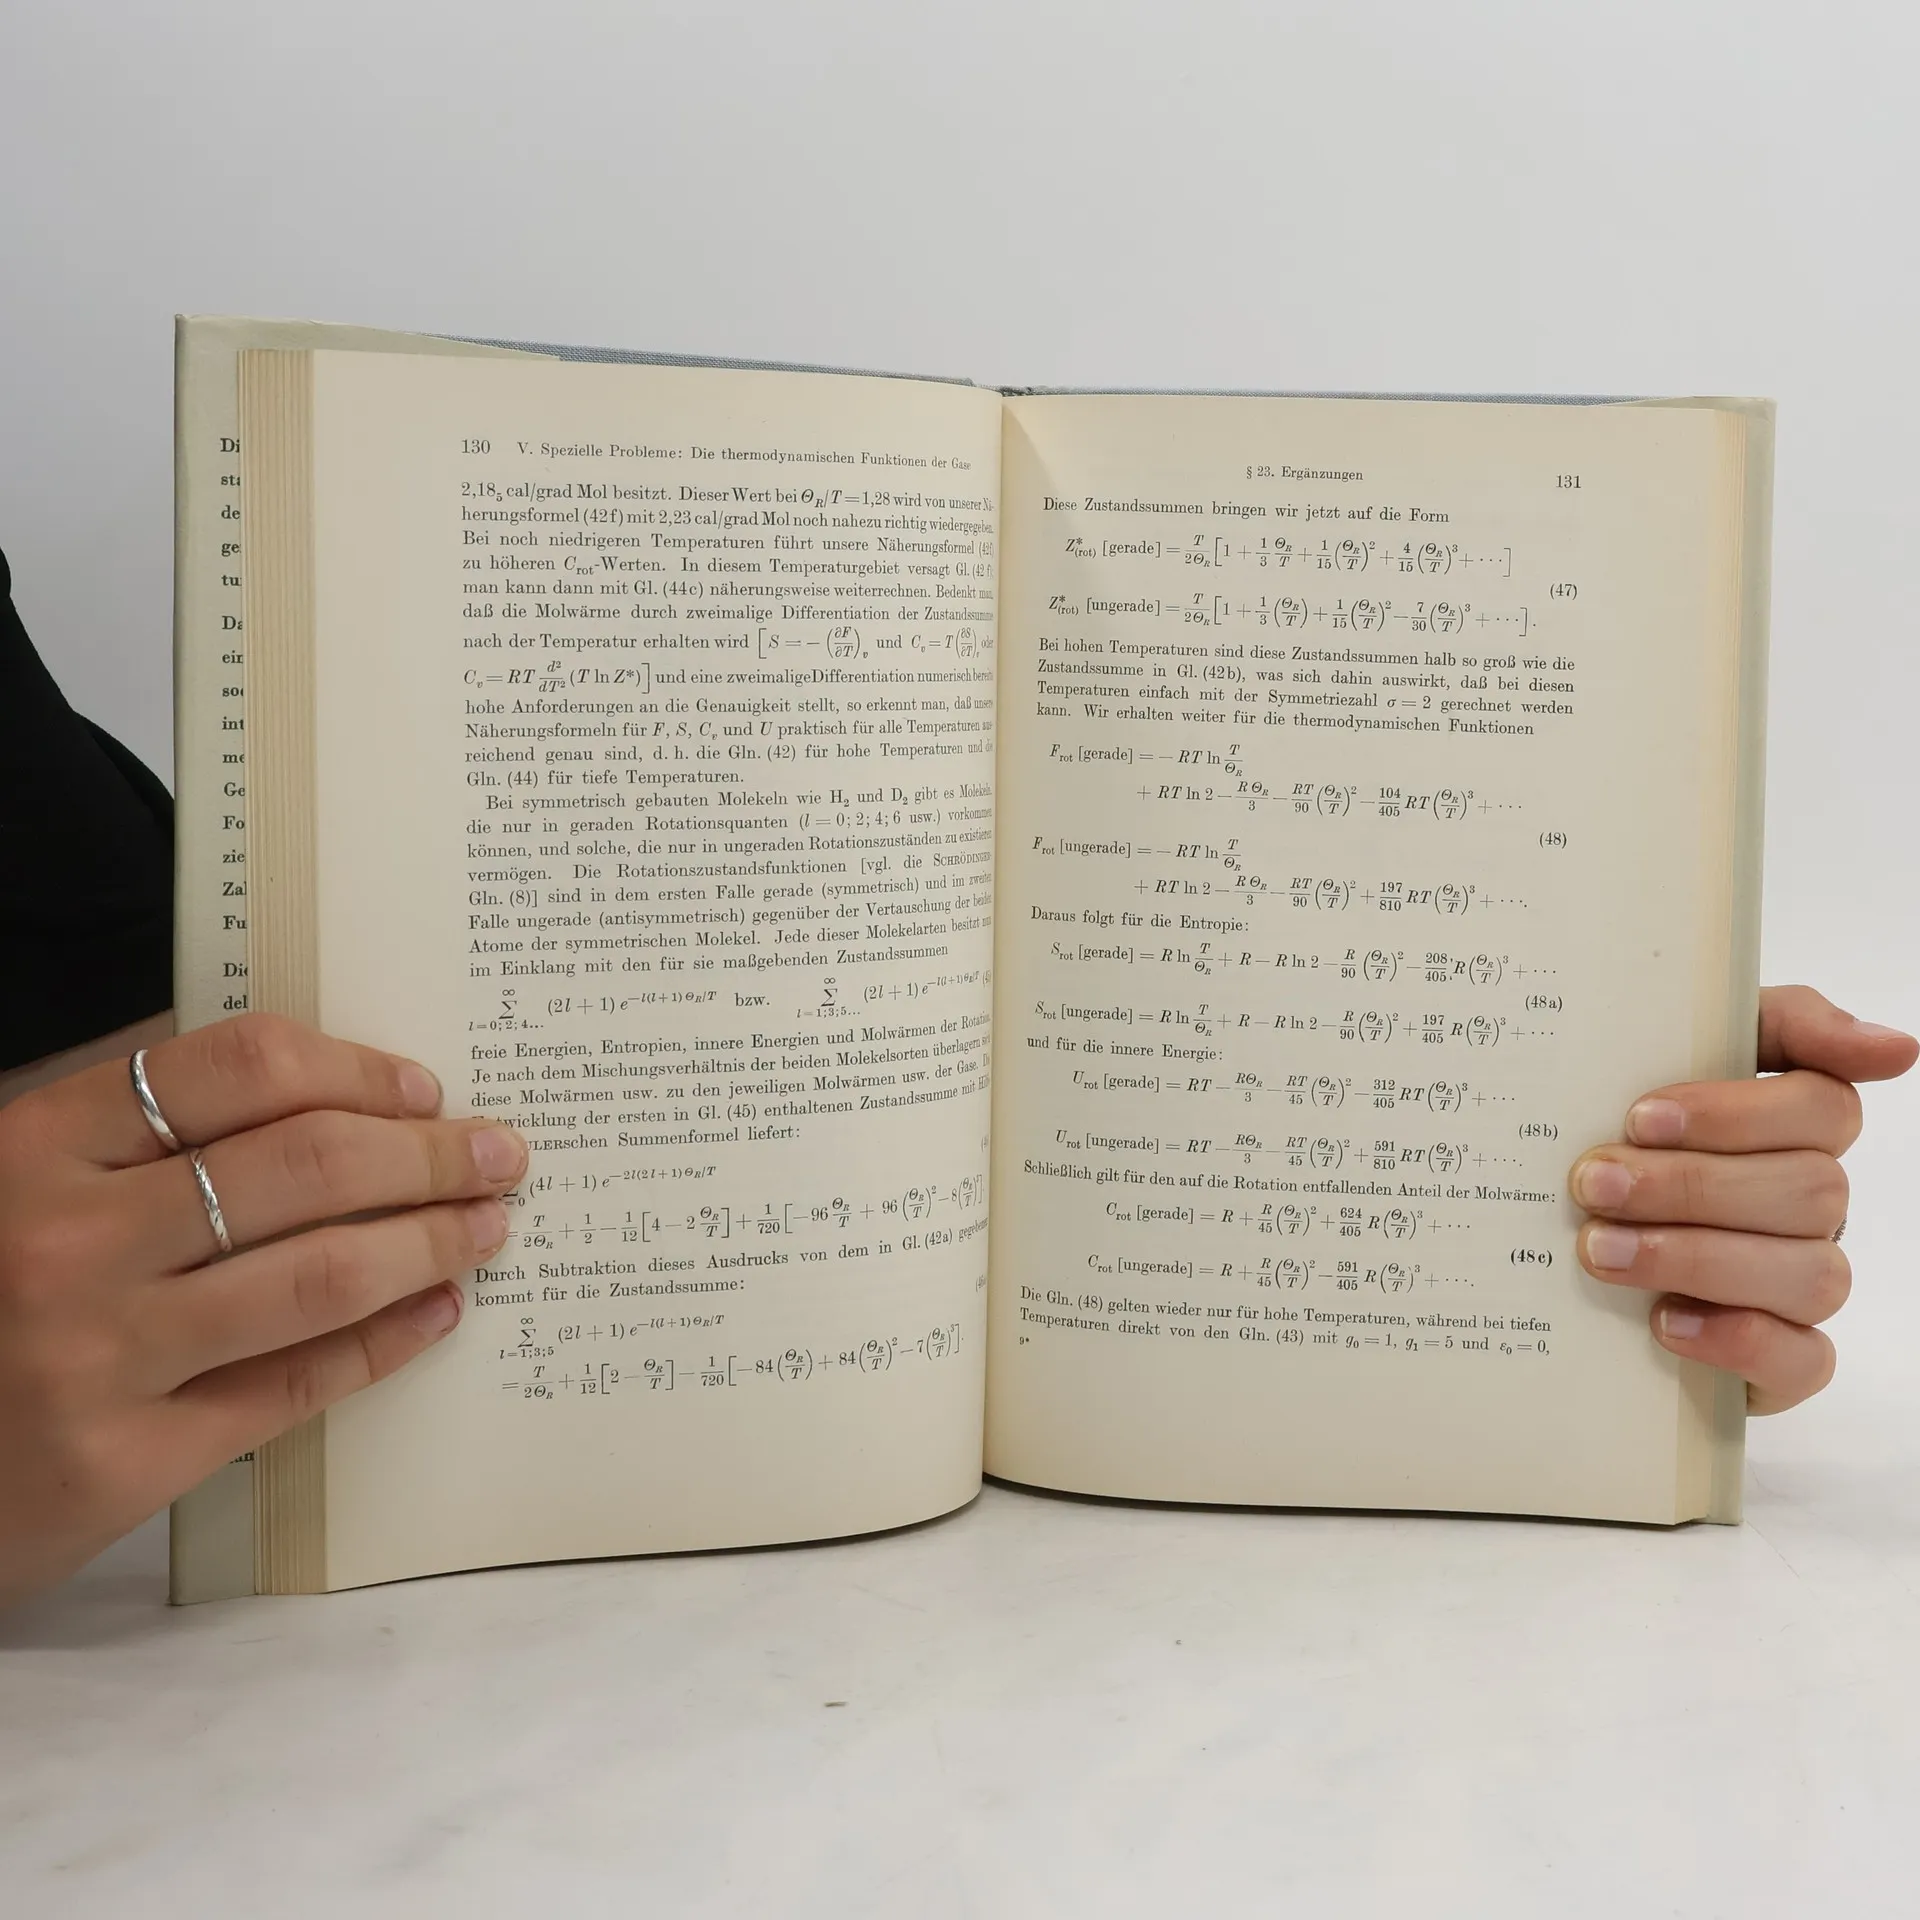 Di
de
ge
tu
ein
so
int
me
Ge
Fo
zie
Zal
Fu
Die
del
130 V. Spezielle Probleme: Die thermodynamischen Funktionen der Gase
2,18₅ cal/grad Mol besitzt. Dieser Wert bei Θ_R/T = 1,28 wird von unserer Nä-
herungsformel (42f) mit 2,23 cal/grad Mol noch nahezu richtig wiedergegeben.
Bei noch niedrigeren Temperaturen führt unsere Näherungsformel (42f)
zu höheren C_rot-Werten. In diesem Temperaturgebiet versagt Gl. (42f)
man kann dann mit Gl. (44c) näherungsweise weiterrechnen. Bedenkt man,
daß die Molwärme durch zweimalige Differentiation der Zustandssumme
nach der Temperatur erhalten wird [S = − (∂F/∂T)_v und C_v = T(∂S/∂T)_v oder
C_v = RT d²/dT² (T ln Z*)] und eine zweimalige Differentiation numerisch bereits
hohe Anforderungen an die Genauigkeit stellt, so erkennt man, daß unsere
Näherungsformeln für F, S, C_v und U praktisch für alle Temperaturen aus-
reichend genau sind, d. h. die Gln. (42) für hohe Temperaturen und die
Gln. (44) für tiefe Temperaturen.
Bei symmetrisch gebauten Molekeln wie H₂ und D₂ gibt es Molekeln,
die nur in geraden Rotationsquanten (l = 0; 2; 4; 6 usw.) vorkommen
können, und solche, die nur in ungeraden Rotationszuständen zu existieren
vermögen. Die Rotationszustandsfunktionen [vgl. die SCHRÖDINGER-
Gln. (8)] sind in dem ersten Falle gerade (symmetrisch) und im zweiten
Falle ungerade (antisymmetrisch) gegenüber der Vertauschung der beiden
Atome der symmetrischen Molekel. Jede dieser Molekelarten besitzt nun
im Einklang mit den für sie maßgebenden Zustandssummen
∞∑l=0;2;4... (2l + 1) e^−l(l+1)Θ_R/T bzw. ∞∑l=1;3;5... (2l + 1) e^−l(l+1)Θ_R/T
freie Energien, Entropien, innere Energien und Molwärmen der Rotation.
Je nach dem Mischungsverhältnis der beiden Molekelsorten überlagern sich
diese Molwärmen usw. zu den jeweiligen Molwärmen usw. der Gase. Die
twicklung der ersten in Gl. (45) enthaltenen Zustandssumme mit Hilfe
ULERschen Summenformel liefert:
∑ =0 (4l + 1) e^−2l(2l+1)Θ_R/T
= T/2Θ_R + 1/2 − 1/12 [4 − 2 Θ_R/T] + 1/720 [−96 Θ_R/T + 96 (Θ_R/T)² − 8 (Θ_R/T)³]
Durch Subtraktion dieses Ausdrucks von dem in Gl. (42a) gegebenen
kommt für die Zustandssumme:
∞∑l=1;3;5 (2l + 1) e^−l(l+1)Θ_R/T
= T/2Θ_R + 1/12 [2 − Θ_R/T] − 1/720 [−84 (Θ_R/T) + 84 (Θ_R/T)² − 7 (Θ_R/T)³].
§ 23. Ergänzungen 131
Diese Zustandssummen bringen wir jetzt auf die Form
Z*_(rot) [gerade] = T/2Θ_R [1 + 1/3 Θ_R/T + 1/15 (Θ_R/T)² + 4/15 (Θ_R/T)³ + ···]
(47)
Z*_(rot) [ungerade] = T/2Θ_R [1 + 1/3 (Θ_R/T) + 1/15 (Θ_R/T)² − 7/30 (Θ_R/T)³ + ···].
Bei hohen Temperaturen sind diese Zustandssummen halb so groß wie die
Zustandssumme in Gl. (42b), was sich dahin auswirkt, daß bei diesen
Temperaturen einfach mit der Symmetriezahl σ = 2 gerechnet werden
kann. Wir erhalten weiter für die thermodynamischen Funktionen
F_rot [gerade] = − RT ln T/Θ_R
+ RT ln 2 − RΘ_R/3 − RT/90 (Θ_R/T)² − 104/405 RT (Θ_R/T)³ + ···
(48)
F_rot [ungerade] = − RT ln T/Θ_R
+ RT ln 2 − RΘ_R/3 − RT/90 (Θ_R/T)² + 197/810 RT (Θ_R/T)³ + ···.
Daraus folgt für die Entropie:
S_rot [gerade] = R ln T/Θ_R + R − R ln 2 − R/90 (Θ_R/T)² − 208/405 R (Θ_R/T)³ + ···
(48a)
S_rot [ungerade] = R ln T/Θ_R + R − R ln 2 − R/90 (Θ_R/T)² + 197/405 R (Θ_R/T)³ + ···
und für die innere Energie:
U_rot [gerade] = RT − RΘ_R/3 − RT/45 (Θ_R/T)² − 312/405 RT (Θ_R/T)³ + ···
(48b)
U_rot [ungerade] = RT − RΘ_R/3 − RT/45 (Θ_R/T)² + 591/810 RT (Θ_R/T)³ + ···.
Schließlich gilt für den auf die Rotation entfallenden Anteil der Molwärme:
C_rot [gerade] = R + R/45 (Θ_R/T)² + 624/405 R (Θ_R/T)³ + ···
(48c)
C_rot [ungerade] = R + R/45 (Θ_R/T)² − 591/405 R (Θ_R/T)³ + ···.
Die Gln. (48) gelten wieder nur für hohe Temperaturen, während bei tiefen
Temperaturen direkt von den Gln. (43) mit g₀ = 1, g₁ = 5 und ε₀ = 0,
9*